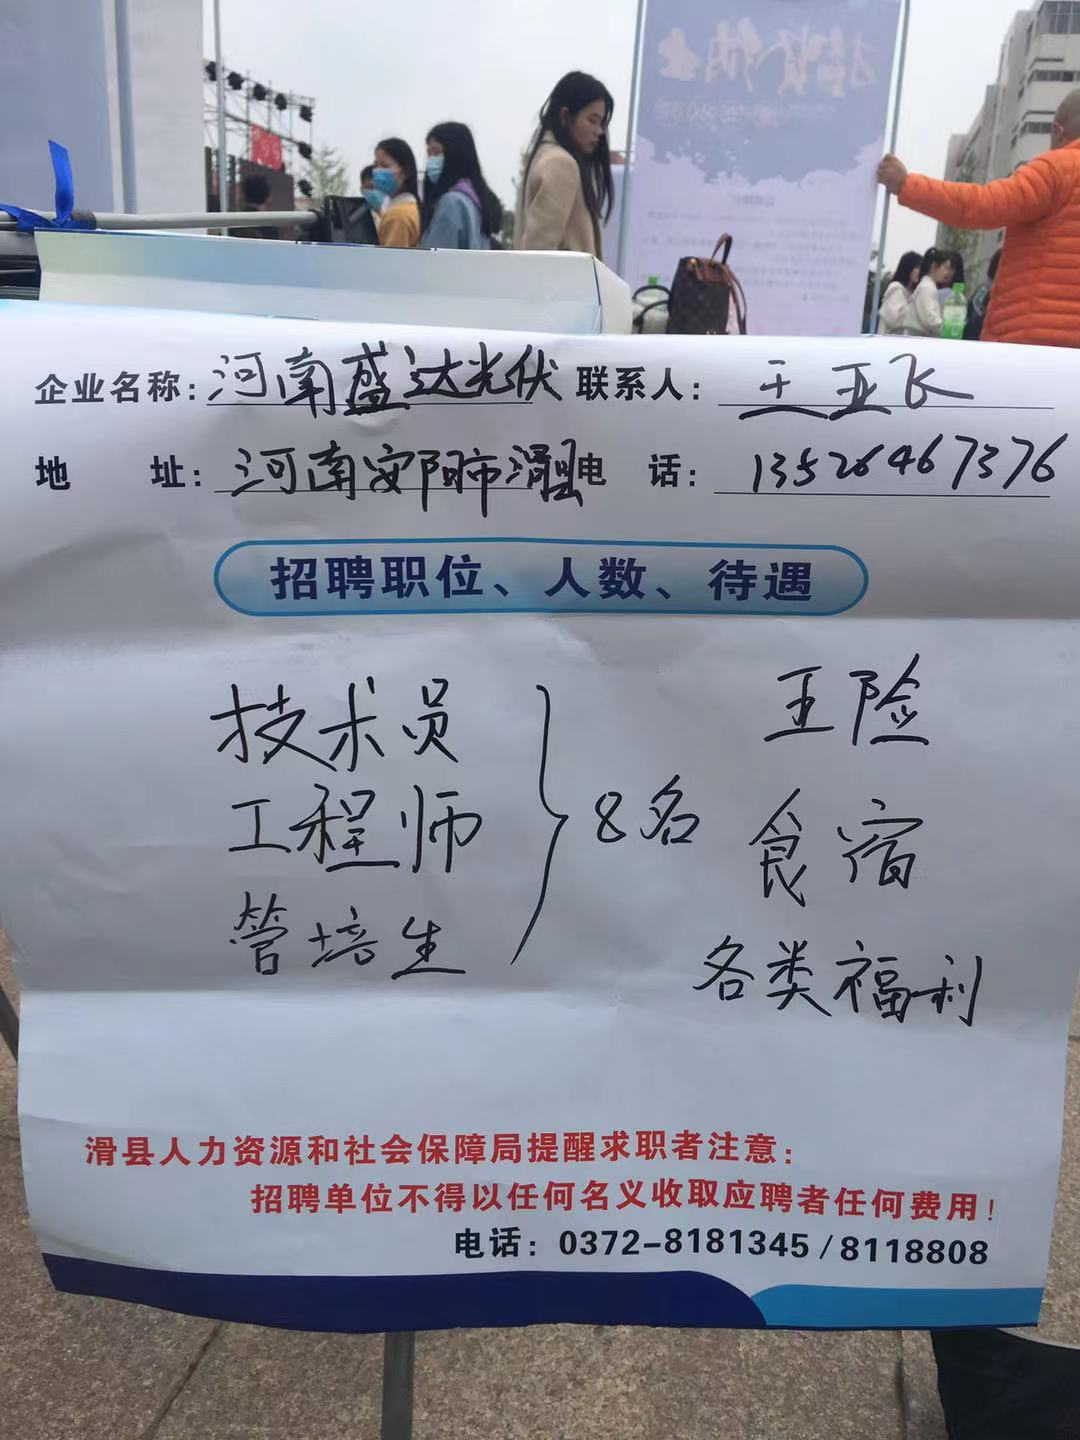 招贤纳士
企业名称：河南盛达光伏 联系人：王亚飞
地 址：河南安阳市滑县 电 话：13526467376
招聘职位、人数、待遇
技术员
工程师
管培生
8名
五险
食宿
各类福利
滑县人力资源和社会保障局提醒求职者注意：
招聘单位不得以任何名义收取应聘者任何费用！
电话：0372-8181345/8118808